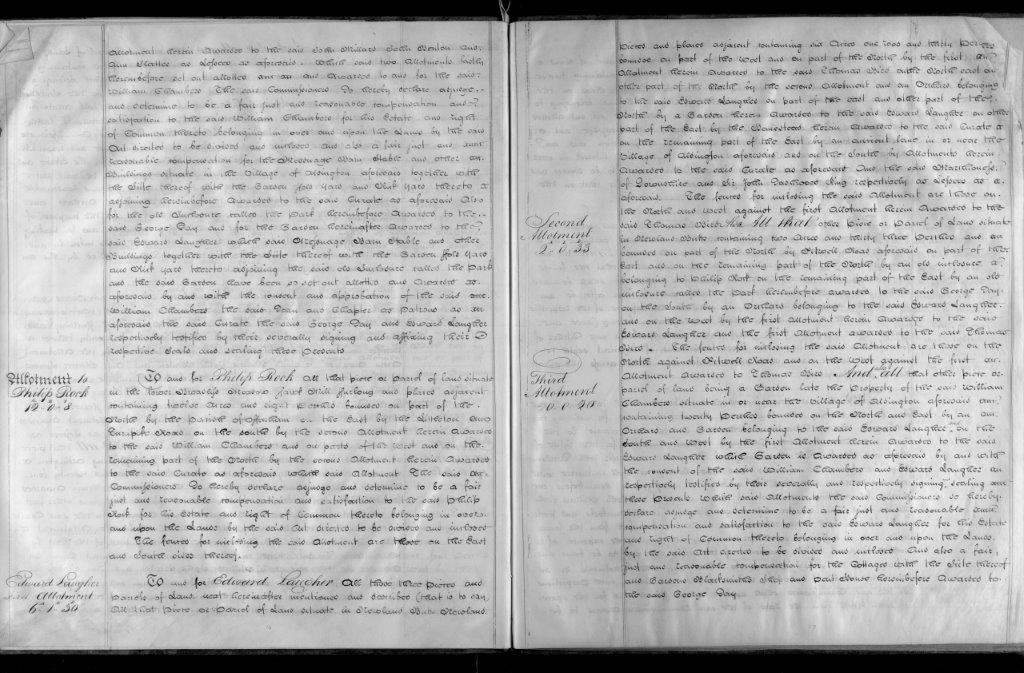 Allotment herein Awarded to the said John Millard John Benton and
Ann Slatter as Lessees as aforesaid. Which said two Allotments lastly
hereinbefore set out allotted and Awarded to and for the said
William Chambers The said Commissioners Do hereby declare adjudge
and determine to be a fair just and reasonable compensation and
satisfaction to the said William Chambers for his Estate and right
of Common thereto belonging in over and upon the Lands by the said
Act directed to be divided and inclosed and also a fair just and
reasonable compensation for the Messuage Barn Stable and other
Buildings situate in the Village of Albington aforesaid together with
the Site thereof with the Garden Fold Yard and Yards thereto
adjoining hereinbefore Awarded to the said Curate as aforesaid Also
for the old Inclosure called the Park hereinbefore Awarded to the
said George Day and for the Garden hereinafter Awarded to the
said Edward Laugher which said Messuage Barn Stable and other
Buildings together with the Site thereof with the Garden Fold Yard
and Yards thereto adjoining the said old Inclosure called the Park
and the said Garden have been so set out allotted and Awarded as
aforesaid by and with the consent and approbation of the said
William Chambers the said Dean and Chapter as Patrons as
aforesaid the said Curate the said George Day and Edward Laugher
respectively testified by their severally signing and affixing their
respective Seals and sealing these Presents
Allotment to
Philip Rock
12" 0" 8
To and for Philip Rock All that piece or Parcel of land situate
in the Lower Meadow Hill Furlong and places adjacent
containing twelve Acres and eight Perches bounded on part of the
North by the Parish of on the East by the Littleton and
Turnpike Road on the South by the second Allotment herein Awarded
to the said William Chambers and on parts of the West and on the
remaining part of the North by the second Allotment herein Awarded
to the said Curate as aforesaid which said Allotment The said
Commissioners Do hereby declare adjudge and determine to be a fair
just and reasonable compensation and satisfaction to the said Philip
Rock for his Estate and right of Common thereto belonging in over
and upon the Lands by the said Act directed to be divided and inclosed
The fences for inclosing the said Allotment are those on the East
and South sides thereof.
Edward Laugher
Allotment
6" 1" 30
To and for Edward Laugher All those three Pieces and
Parcels of Land next hereinafter mentioned and described (that is to say)
All that Piece or Parcel of Land situate in
Pieces and places adjacent containing six Acres one rood and thirty Perches
bounded on part of the West and on part of the North by the first
Allotment herein Awarded to the said Thomas on the North east on
other part of the North by the second Allotment and an Orchard belonging
to the said Edward Laugher on part of the east and other part of the
North by a Garden herein Awarded to the said Edward Laugher on other
part of the East by the Homestead herein Awarded to the said Curate
on the remaining part of the East by an ancient lane in or near the
Village of Albington aforesaid and on the South by Allotments herein
Awarded to the said Curate as aforesaid and the said Marchioness
of Downshire and Sir John Dashwood King respectively as Lessees as
aforesaid. The fences for inclosing the said Allotment are those on
the North and West against the first Allotment herein Awarded to the
Second
Allotment
2" 0" 33
said Thomas And All that other Piece or Parcel of Land situate
in containing two Acres and thirty three Perches and
bounded on part of the North by Road aforesaid on part of the
East and on the remaining part of the North by an old inclosure
belonging to Philip Rock on the remaining part of the East by an old
inclosure called the Park hereinbefore awarded to the said George Day
on the South by an Orchard belonging to the said Edward Laugher
and on the West by the first Allotment herein Awarded to the said
Edward Laugher and the first Allotment awarded to the said Thomas
The fences for inclosing the said Allotment are those on the
North against Road and on the West against the first
Third
Allotment
0" 0" 20
Allotment Awarded to Thomas And all that other piece or
parcel of land being a Garden late the Property of the said William
Chambers situate in or near the Village of Albington aforesaid
containing twenty Perches bounded on the North and East by an
Orchard and Garden belonging to the said Edward Laugher on the
South and West by the first Allotment herein Awarded to the said
Edward Laugher which Garden is Awarded as aforesaid by and with
the consent of the said William Chambers and Edward Laugher
respectively testified by their severally and respectively signing sealing
these Presents Which said Allotments the said Commissioners do hereby
declare adjudge and determine to be a fair just and reasonable
compensation and satisfaction to the said Edward Laugher for his Estate
and right of Common thereto belonging in over and upon the Lands
by the said Act directed to be divided and inclosed And also a fair
just and reasonable compensation for the Cottages with the Site thereof
and Gardens Blacksmiths Shop and House hereinbefore Awarded to
the said George Day